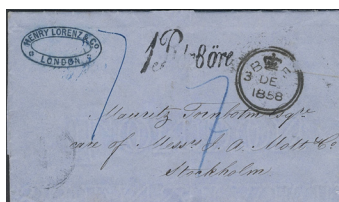 HENRY LORENZ & Co
LONDON
öre
3 DE
1858
Mauritz Tornholm Esqre
care of Messrs J. A. Mött Co
Stockholm